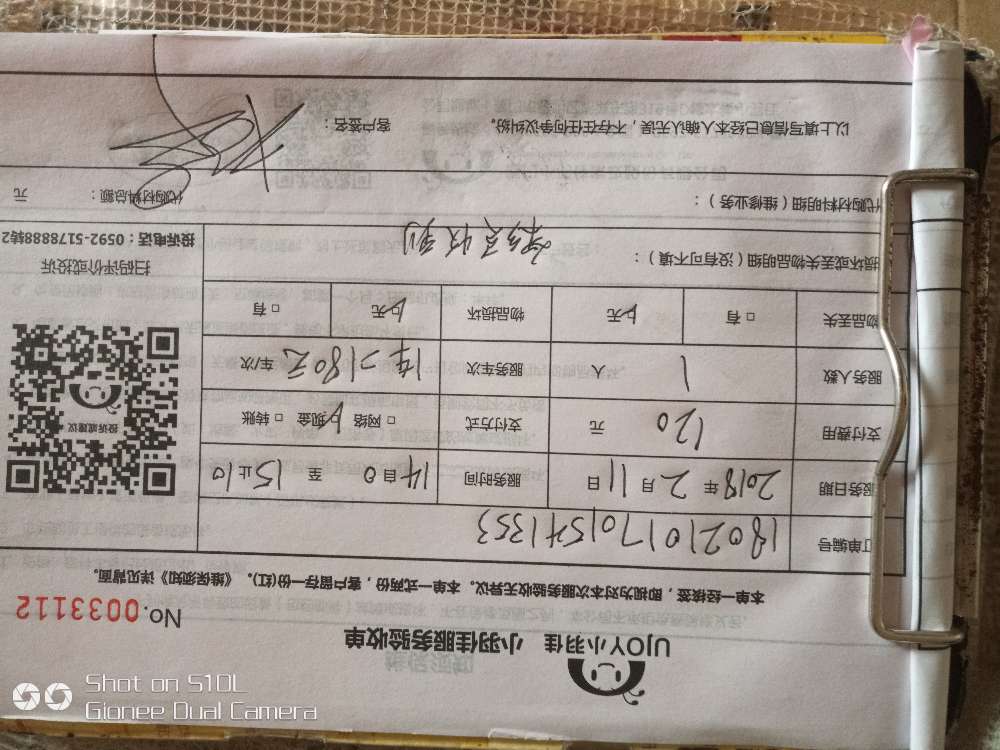 UJOY小羽佳 小羽佳服务验收单
No. 0033112
一单一经核签,即视为对本次服务验收无异议。本单一式两份,客户留存一份(红)。《维保须知》详见背面。
订单编号 180210170154 1353
服务日期 2018 年 2 月 11 日 服务时间 14 自 0 至 15 止 10
支付费用 120 元 支付方式 □ 网络 □ 现金 □ 转账
服务人数 1 人 服务车次 车/次
物品丢失 □ 有 □ 无 物品损坏 □ 无 □ 有
损坏或丢失物品明细(没有可不填):
代购材料明细(维修业务): 代购材料总额: 元
以上填写信息已经本人确认无误,不存在任何争议纠纷。 客户签名:
投诉或建议
扫码评价或投诉
投诉电话:0592-5178888转2
Shot on S10L
Gionee Dual Camera